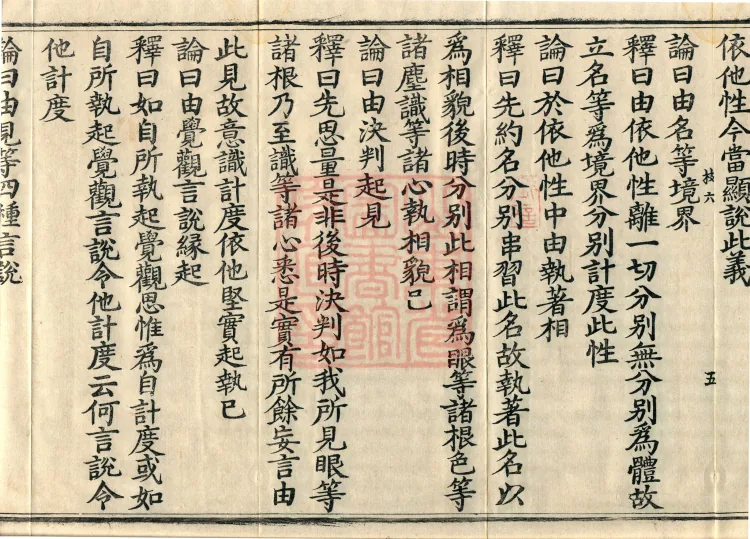 依他性今當顯說此義
論曰由名等境界
釋曰由依他性離一切分別無分別爲體故
立名等爲境界分別計度此性
論曰於依他性中由執著相
釋曰先約名分別串習此名故執著此名以
爲相貌後時分別此相謂爲眼等諸根色等
諸塵識等諸心執相貌已
論曰由決判起見
釋曰先思量是非後時決判如我所見眼等
諸根乃至識等諸心悉是實有所餘妄言由
此見故意識計度依他堅實起執已
論曰由覺觀言說緣起
釋曰如自所執起覺觀思惟爲自計度或如
自所執起覺觀言說令他計度云何言說令
他計度
論曰由見等四種言說
五